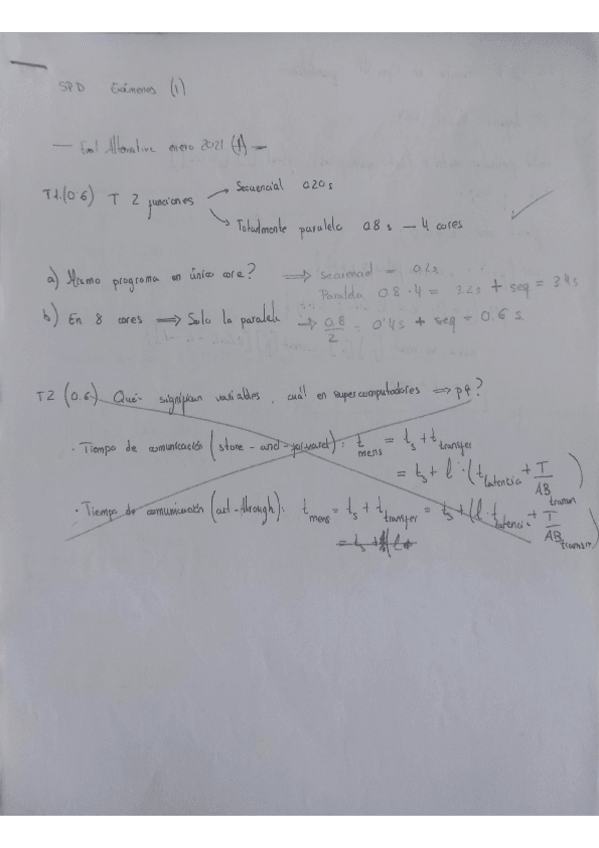 SPD Exámenes (1)
— Eval Alternativa enero 2021 (1) —
T1.(0.6) T 2 funciones → Secuencial 0.20 s
→ Totalmente paralelo 0.8 s — 4 cores
a) Mismo programa en único core? ⟹ secuencial = 0.2s
Paralela 0.8 · 4 = 3.2s + seq = 3.4s
b) En 8 cores ⟹ Solo la paralela → 0.8/2 = 0.4s + seq = 0.6 s
T2 (0.6) Qué significan variables, cuál en supercomputadores ⟹ pq?
· Tiempo de comunicación (store-and-forward): t mens = ts + t transfer
= ts + l · (t latencia + T/AB transm)
· Tiempo de comunicación (cut-through): t mens = ts + t transfer = ts + (l · t latencia + T/AB transm)